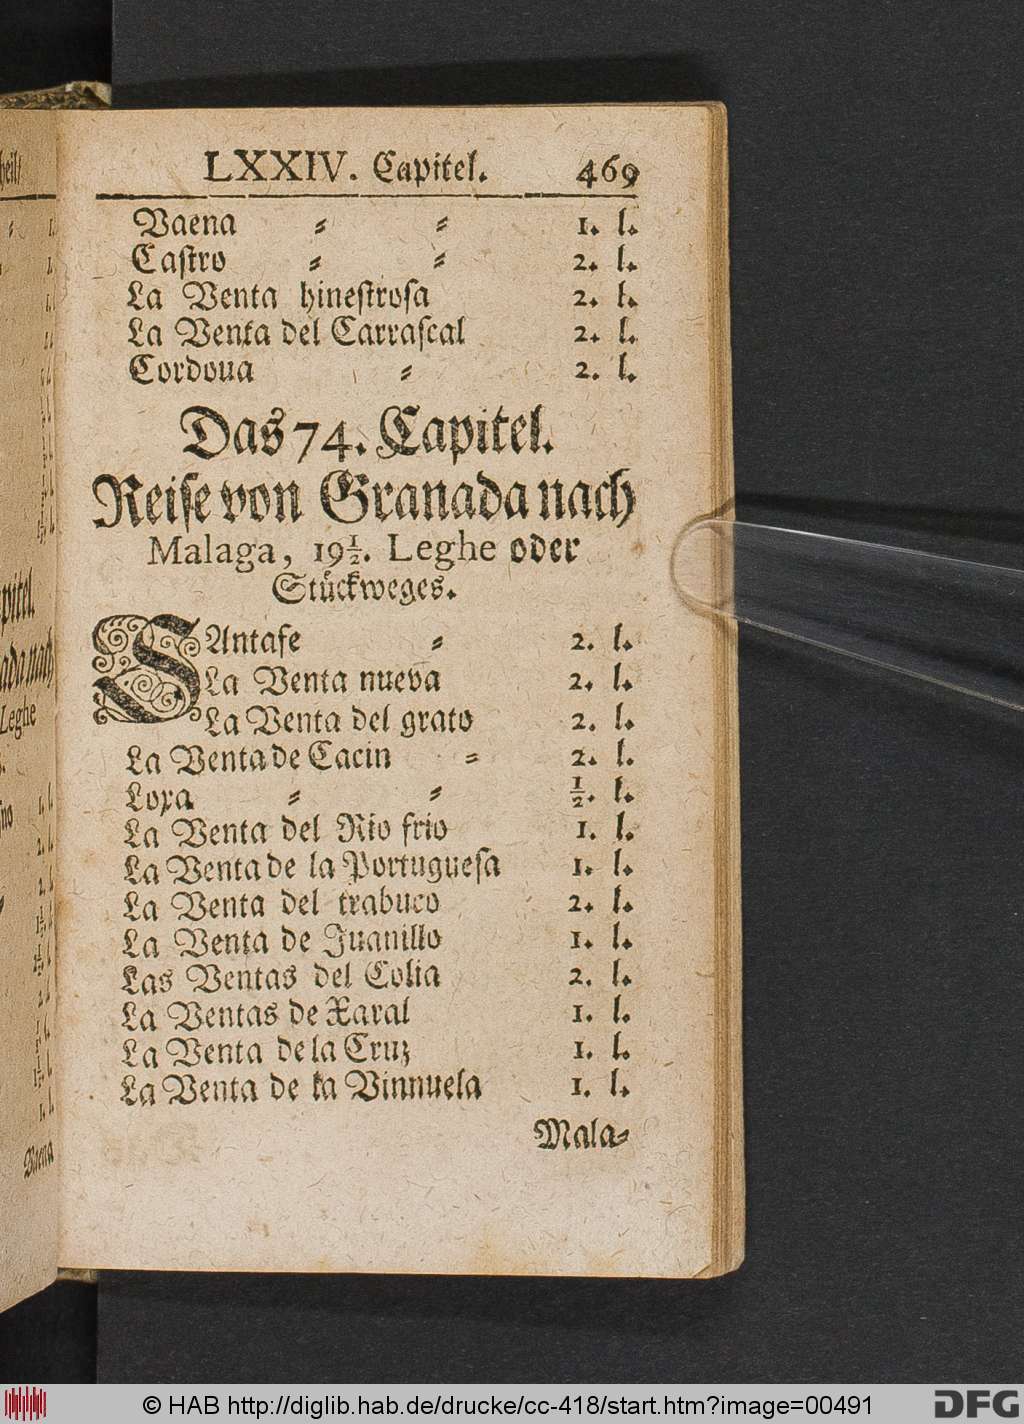 LXXIV. Capitel. 469
Vaena ⸗ ⸗ 1. l.
Castro ⸗ ⸗ 2. l.
La Venta hinestrosa 2. l.
La Venta del Carrascal 2. l.
Cordoua ⸗ 2. l.
Das 74. Capitel.
Reise von Granada nach
Malaga, 19½. Leghe oder
Stückweges.
SAntafe ⸗ 2. l.
La Venta nueva 2. l.
La Venta del grato 2. l.
La Venta de Cacin ⸗ 2. l.
Loxa ⸗ ⸗ ½. l.
La Venta del Rio frio 1. l.
La Venta de la Portuguesa 1. l.
La Venta del trabuco 2. l.
La Venta de Juanillo 1. l.
Las Ventas del Colia 2. l.
La Ventas de Xaral 1. l.
La Venta de la Cruz 1. l.
La Venta de la Vinnuela 1. l.
Mala⸗
© HAB http://diglib.hab.de/drucke/cc-418/start.htm?image=00491
DFG